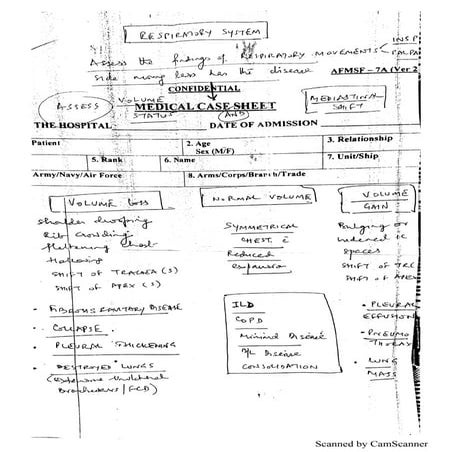 RESPIRATORY SYSTEM
Assess the findings of RESPIRATORY MOVEMENTS
INSP
PALPA
side moving less has the disease
AFMSF - 7A (Ver 2
CONFIDENTIAL
ASSESS VOLUME STATUS
MEDICAL CASE SHEET
AND
MEDIASTINAL SHIFT
THE HOSPITAL
DATE OF ADMISSION
Patient
2. Age
Sex (M/F)
3. Relationship
5. Rank
6. Name
7. Unit/Ship
Army/Navy/Air Force
8. Arms/Corps/Branch/Trade
VOLUME LOSS
Sholder drooping
Rib crowding
flattening chest
Hallowing
SHIFT OF TRACHEA (S)
SHIFT OF APEX (S)
• FIBROSIS CAVITORY DISEASE
• COLLAPSE
• PLEURAL THICKENING
• DESTROYED LUNGS
(Extensive
Bronchiectasis / FCD)
NORMAL VOLUME
SYMMETRICAL
CHEST c̄
Reduced
expansion
ILD
COPD
Minimal Disease
B/L Disease
CONSOLIDATION
VOLUME GAIN
Bulging or
widened ic
spaces
SHIFT OF TRC
SHIFT OF APEX
• PLEURAL
EFFUSION
• PNEUMO
THORAX
• LUNG
MASS
Scanned by CamScanner